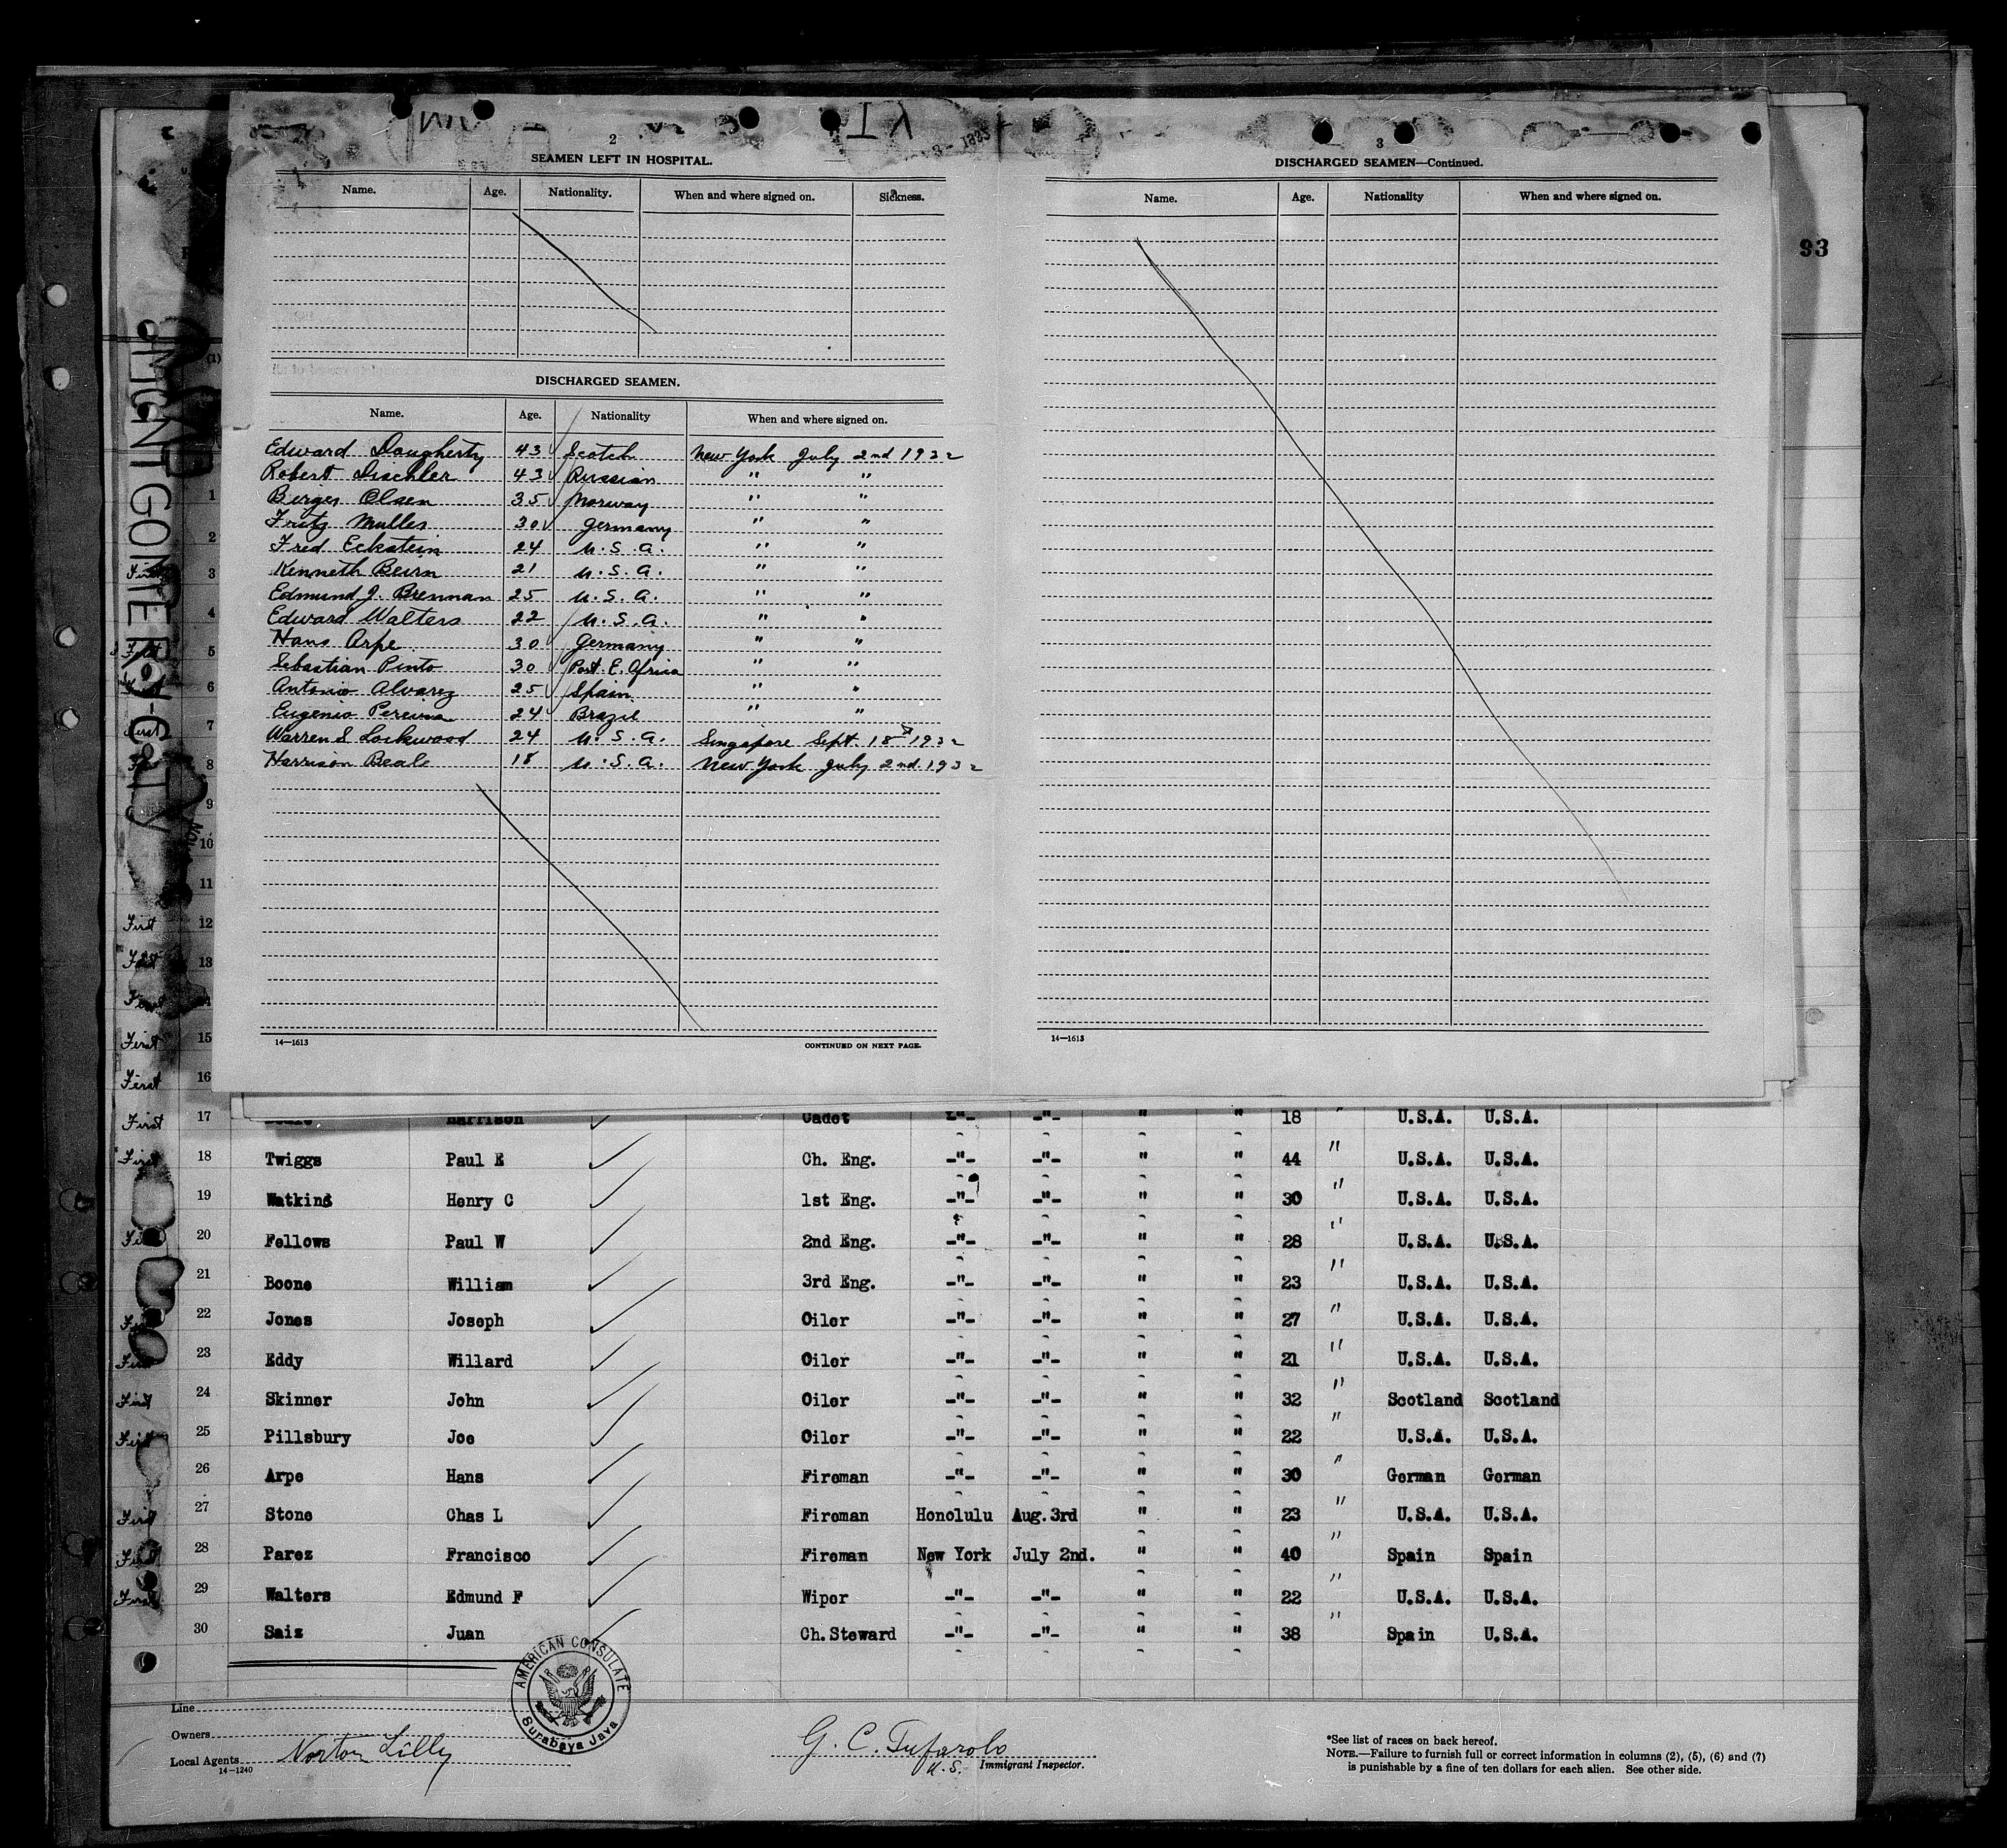 2
SEAMEN LEFT IN HOSPITAL.
Name. Age. Nationality. When and where signed on. Sickness.
DISCHARGED SEAMEN.
Name. Age. Nationality When and where signed on.
Edward Daugherty 43 Scotch New York July 2nd 1932
Robert Dischler 43 Russian " "
Birger Olsen 35 Norway " "
Fritz Muller 30 Germany " "
Fred Eckstein 24 U.S.A. " "
Kenneth Beirn 21 U.S.A. " "
Edmund J. Brennan 25 U.S.A. " "
Edward Walters 22 U.S.A. " "
Hans Arpe 30 Germany " "
Sebastian Pinto 30 Port. E. Africa " "
Antonio Alvarez 25 Spain " "
Eugenio Pereira 24 Brazil " "
Warren S Lockwood 24 U.S.A. Singapore Sept. 18 1932
Harrison Beale 18 U.S.A. New York July 2nd 1932
14—1613 CONTINUED ON NEXT PAGE.
3
DISCHARGED SEAMEN—Continued.
Name. Age. Nationality When and where signed on.
14—1613
93
(1)
1
2
3
4
5
6
7
8
9
10
11
First 12
First 13
First 14
First 15
First 16
First 17 Harrison Cadet -"- -"- " " 18 " U.S.A. U.S.A.
First 18 Twiggs Paul E Ch. Eng. -"- -"- " " 44 " U.S.A. U.S.A.
19 Watkins Henry C 1st Eng. -"- -"- " " 30 " U.S.A. U.S.A.
First 20 Fellows Paul W 2nd Eng. -"- -"- " " 28 " U.S.A. U.S.A.
21 Boone William 3rd Eng. -"- -"- " " 23 " U.S.A. U.S.A.
First 22 Jones Joseph Oiler -"- -"- " " 27 " U.S.A. U.S.A.
First 23 Eddy Willard Oiler -"- -"- " " 21 " U.S.A. U.S.A.
First 24 Skinner John Oiler -"- -"- " " 32 " Scotland Scotland
First 25 Pillsbury Joe Oiler -"- -"- " " 22 " U.S.A. U.S.A.
26 Arpe Hans Fireman -"- -"- " " 30 " German German
First 27 Stone Chas L Fireman Honolulu Aug. 3rd " " 23 " U.S.A. U.S.A.
First 28 Parez Francisco Fireman New York July 2nd. " " 40 " Spain Spain
First 29 Walters Edmund F Wiper -"- -"- " " 22 " U.S.A. U.S.A.
30 Saiz Juan Ch. Steward -"- -"- " " 38 " Spain U.S.A.
AMERICAN CONSULATE
Surabaya Java
Line
Owners
Local Agents Norton Lilly
14—1240
G. C. Tufarolo
U.S. Immigrant Inspector.
*See list of races on back hereof.
NOTE.—Failure to furnish full or correct information in columns (2), (5), (6) and (7)
is punishable by a fine of ten dollars for each alien. See other side.